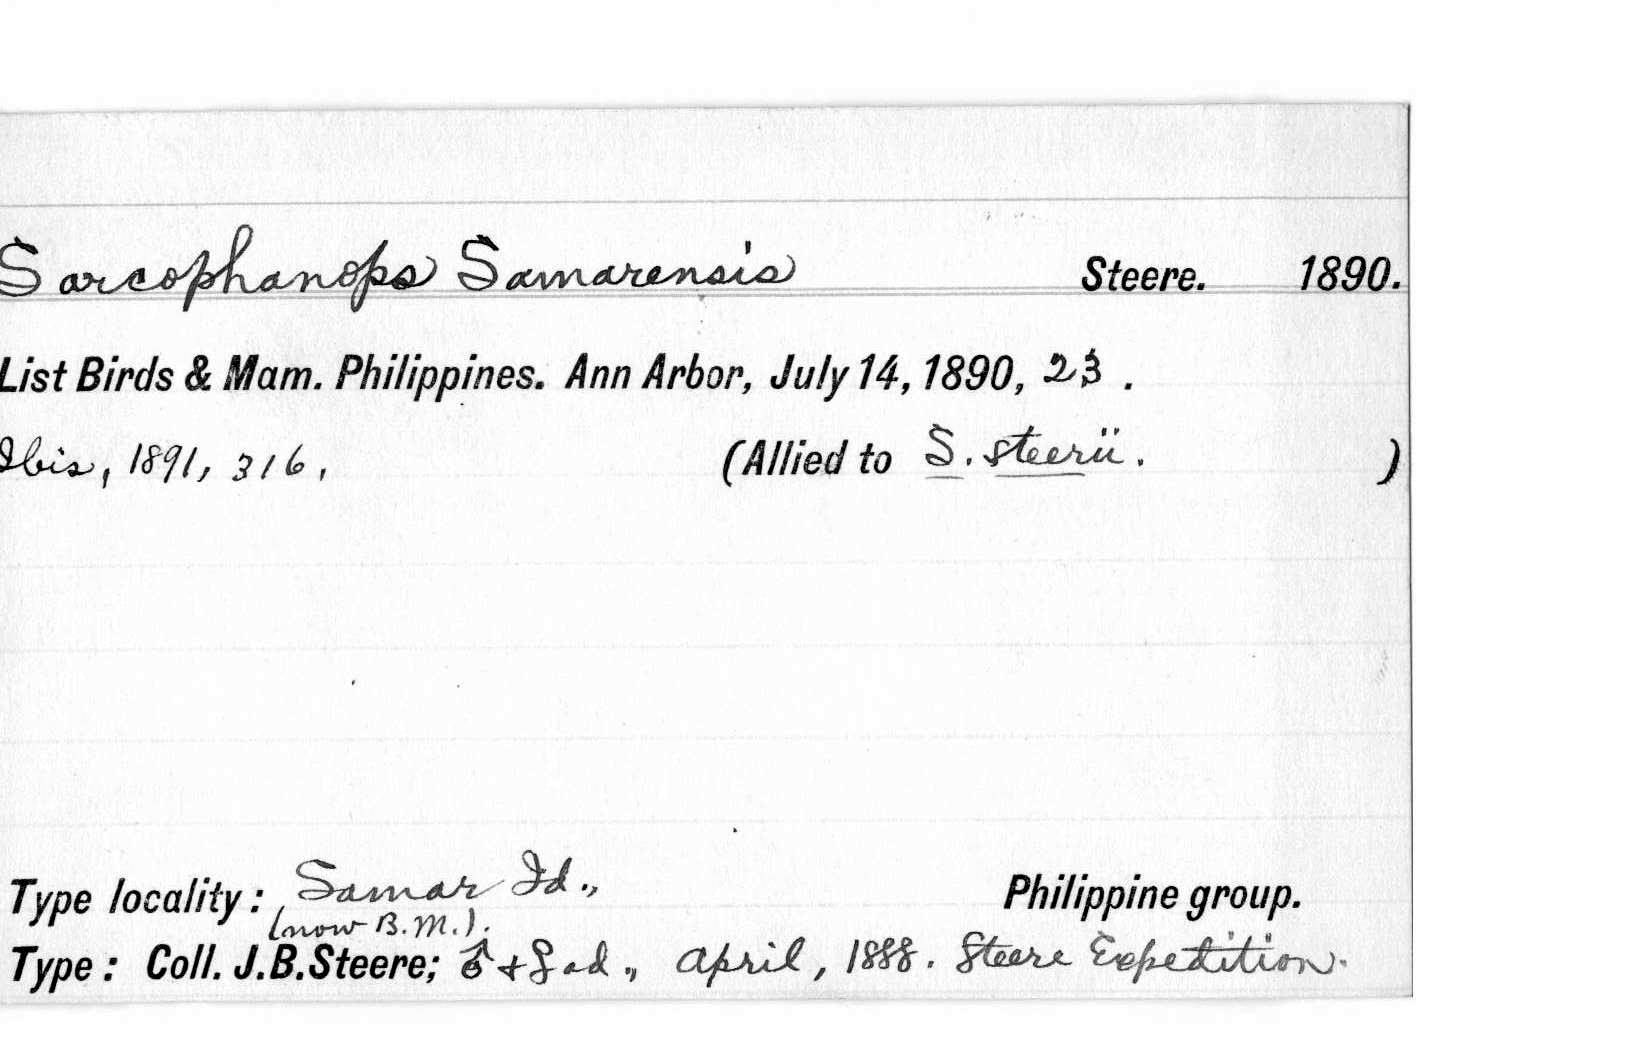 Sarcophanops Samarensis Steere. 1890.
List Birds & Mam. Philippines. Ann Arbor, July 14, 1890, 23.
Ibis, 1891, 316, (Allied to S. steerii. )
Type locality: Samar Id., Philippine group.
(now B.M.).
Type: Coll. J.B.Steere; ♂ + ♀ ad., April, 1888. Steere Expedition.